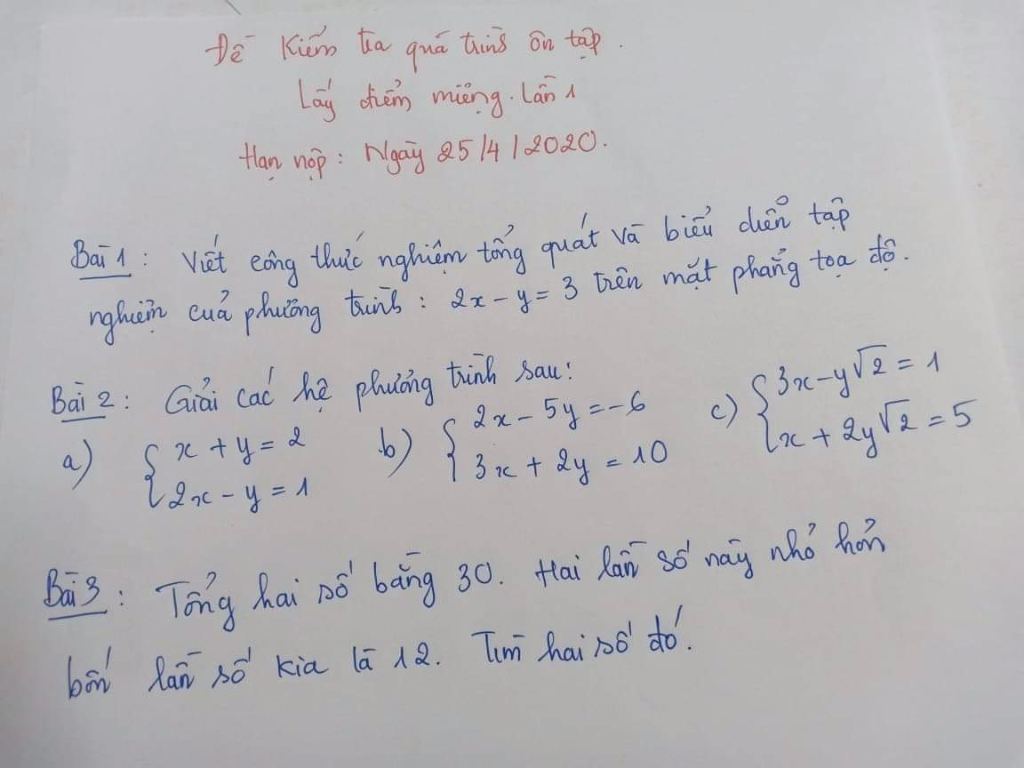 Đề Kiểm tra quá trình ôn tập.
Lấy điểm miệng. Lần 1
Hạn nộp: Ngày 25/4/2020.
Bài 1: Viết công thức nghiệm tổng quát và biểu diễn tập
nghiệm của phương trình: 2x - y = 3 trên mặt phẳng tọa độ.
Bài 2: Giải các hệ phương trình sau:
a) { x + y = 2
2x - y = 1
b) { 2x - 5y = -6
3x + 2y = 10
c) { 3x - y√2 = 1
x + 2y√2 = 5
Bài 3: Tổng hai số bằng 30. Hai lần số này nhỏ hơn
bốn lần số kia là 12. Tìm hai số đó.